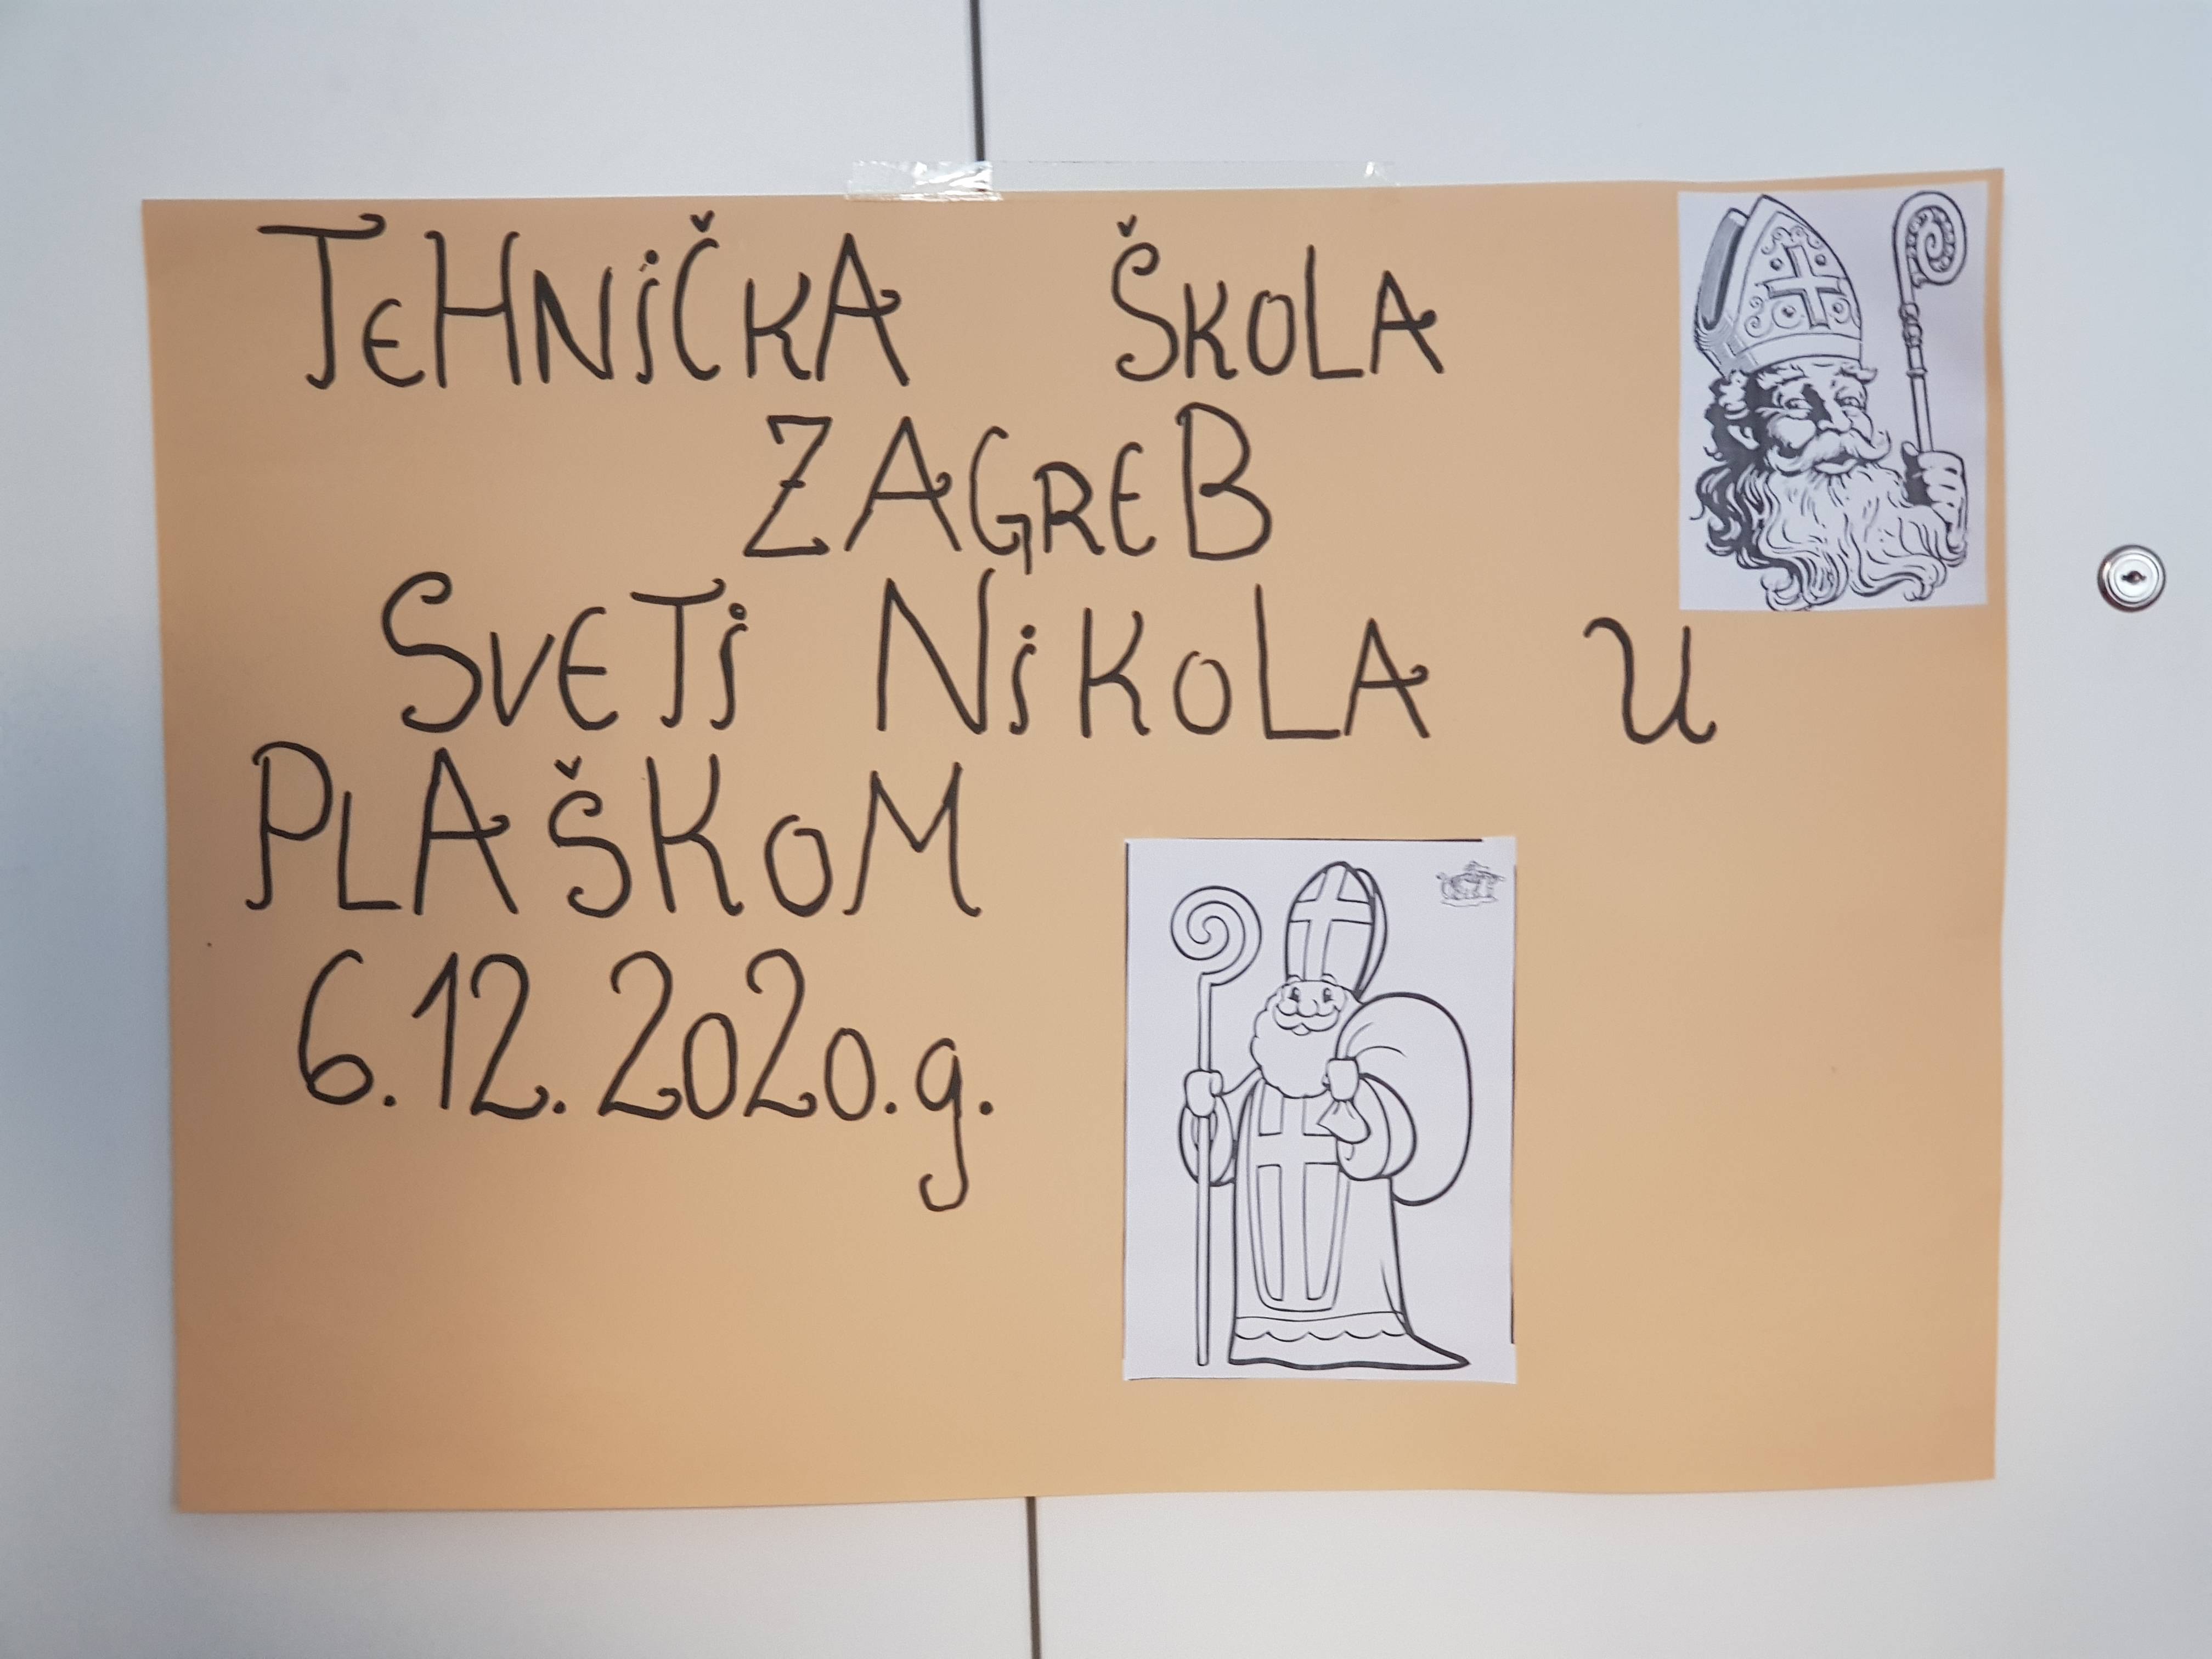 TEHNIČKA ŠKOLA
ZAGREB
SVETI NIKOLA U
PLAŠKOM
6.12.2020.g.